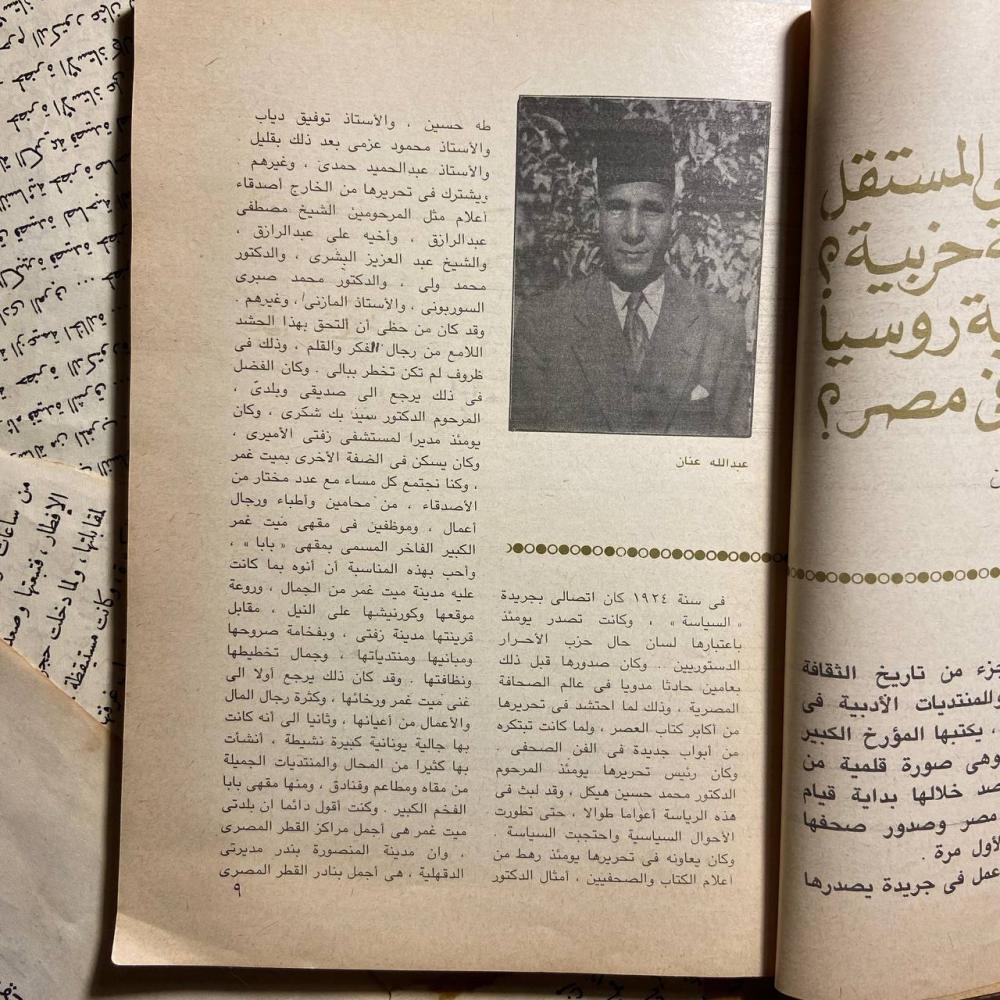 المستقل
حزبية ؟
روسيا
مصر ؟
جزء من تاريخ الثقافة
وللمنتديات الأدبية فى
، يكتبها المؤرخ الكبير
وهى صورة قلمية من
خلالها بداية قيام
مصر وصدور صحفها
لأول مرة .
عمل فى جريدة يصدرها
عبدالله عنان
فى سنة ١٩٢٤ كان اتصالى بجريدة
« السياسة » ، وكانت تصدر يومئذ
باعتبارها لسان حال حزب الأحرار
الدستوريين . وكان صدورها قبل ذلك
بعامين حادثا مدويا فى عالم الصحافة
المصرية ، وذلك لما احتشد فى تحريرها
من أكابر كتاب العصر ، ولما كانت تبتكره
من أبواب جديدة فى الفن الصحفى .
وكان رئيس تحريرها يومئذ المرحوم
الدكتور محمد حسين هيكل ، وقد لبث فى
هذه الرياسة أعواما طوالا ، حتى تطورت
الأحوال السياسية واحتجبت السياسة .
وكان يعاونه فى تحريرها يومئذ رهط من
أعلام الكتاب والصحفيين ، أمثال الدكتور
طه حسين ، والأستاذ توفيق دياب
والأستاذ محمود عزمى بعد ذلك بقليل ،
والأستاذ عبدالحميد حمدى ، وغيرهم .
ويشترك فى تحريرها من الخارج أصدقاء
أعلام مثل المرحومين الشيخ مصطفى
عبدالرازق ، وأخيه على عبدالرازق ،
والشيخ عبد العزيز البشرى ، والدكتور
محمد ولى ، والدكتور محمد صبرى
السوربونى ، والأستاذ المازنى ، وغيرهم .
وقد كان من حظى أن التحق بهذا الحشد
اللامع من رجال الفكر والقلم ، وذلك فى
ظروف لم تكن تخطر ببالى . وكان الفضل
فى ذلك يرجع الى صديقى وبلدى ،
المرحوم الدكتور سيد بك شكرى ، وكان
يومئذ مديرا لمستشفى زفتى الأميرى ،
وكان يسكن فى الضفة الأخرى بميت غمر
، وكنا نجتمع كل مساء مع عدد مختار من
الأصدقاء ، من محامين وأطباء ورجال
أعمال ، وموظفين فى مقهى ميت غمر
الكبير الفاخر المسمى بمقهى « بابا » ،
وأحب بهذه المناسبة أن أنوه بما كانت
عليه مدينة ميت غمر من الجمال ، وروعة
موقعها وكورنيشها على النيل ، مقابل
قرينتها مدينة زفتى ، وبفخامة صروحها
ومبانيها ومنتدياتها ، وجمال تخطيطها
ونظافتها . وقد كان ذلك يرجع أولا الى
غنى ميت غمر ورخائها ، وكثرة رجال المال
والأعمال من أعيانها ، وثانيا الى أنه كانت
بها جالية يونانية كبيرة نشيطة ، أنشأت
بها كثيرا من المحال والمنتديات الجميلة
من مقاه ومطاعم وفنادق ، ومنها مقهى بابا
الفخم الكبير . وكنت أقول دائما ان بلدتى
ميت غمر هى أجمل مراكز القطر المصرى
، وان مدينة المنصورة بندر مديرتى
الدقهلية ، هى أجمل بنادر القطر المصرى
٩
من ساعات
الإفطار ، فتبعتها وصعد
لمقابلتها ، ولما دخلت
وكانت مستيقظة